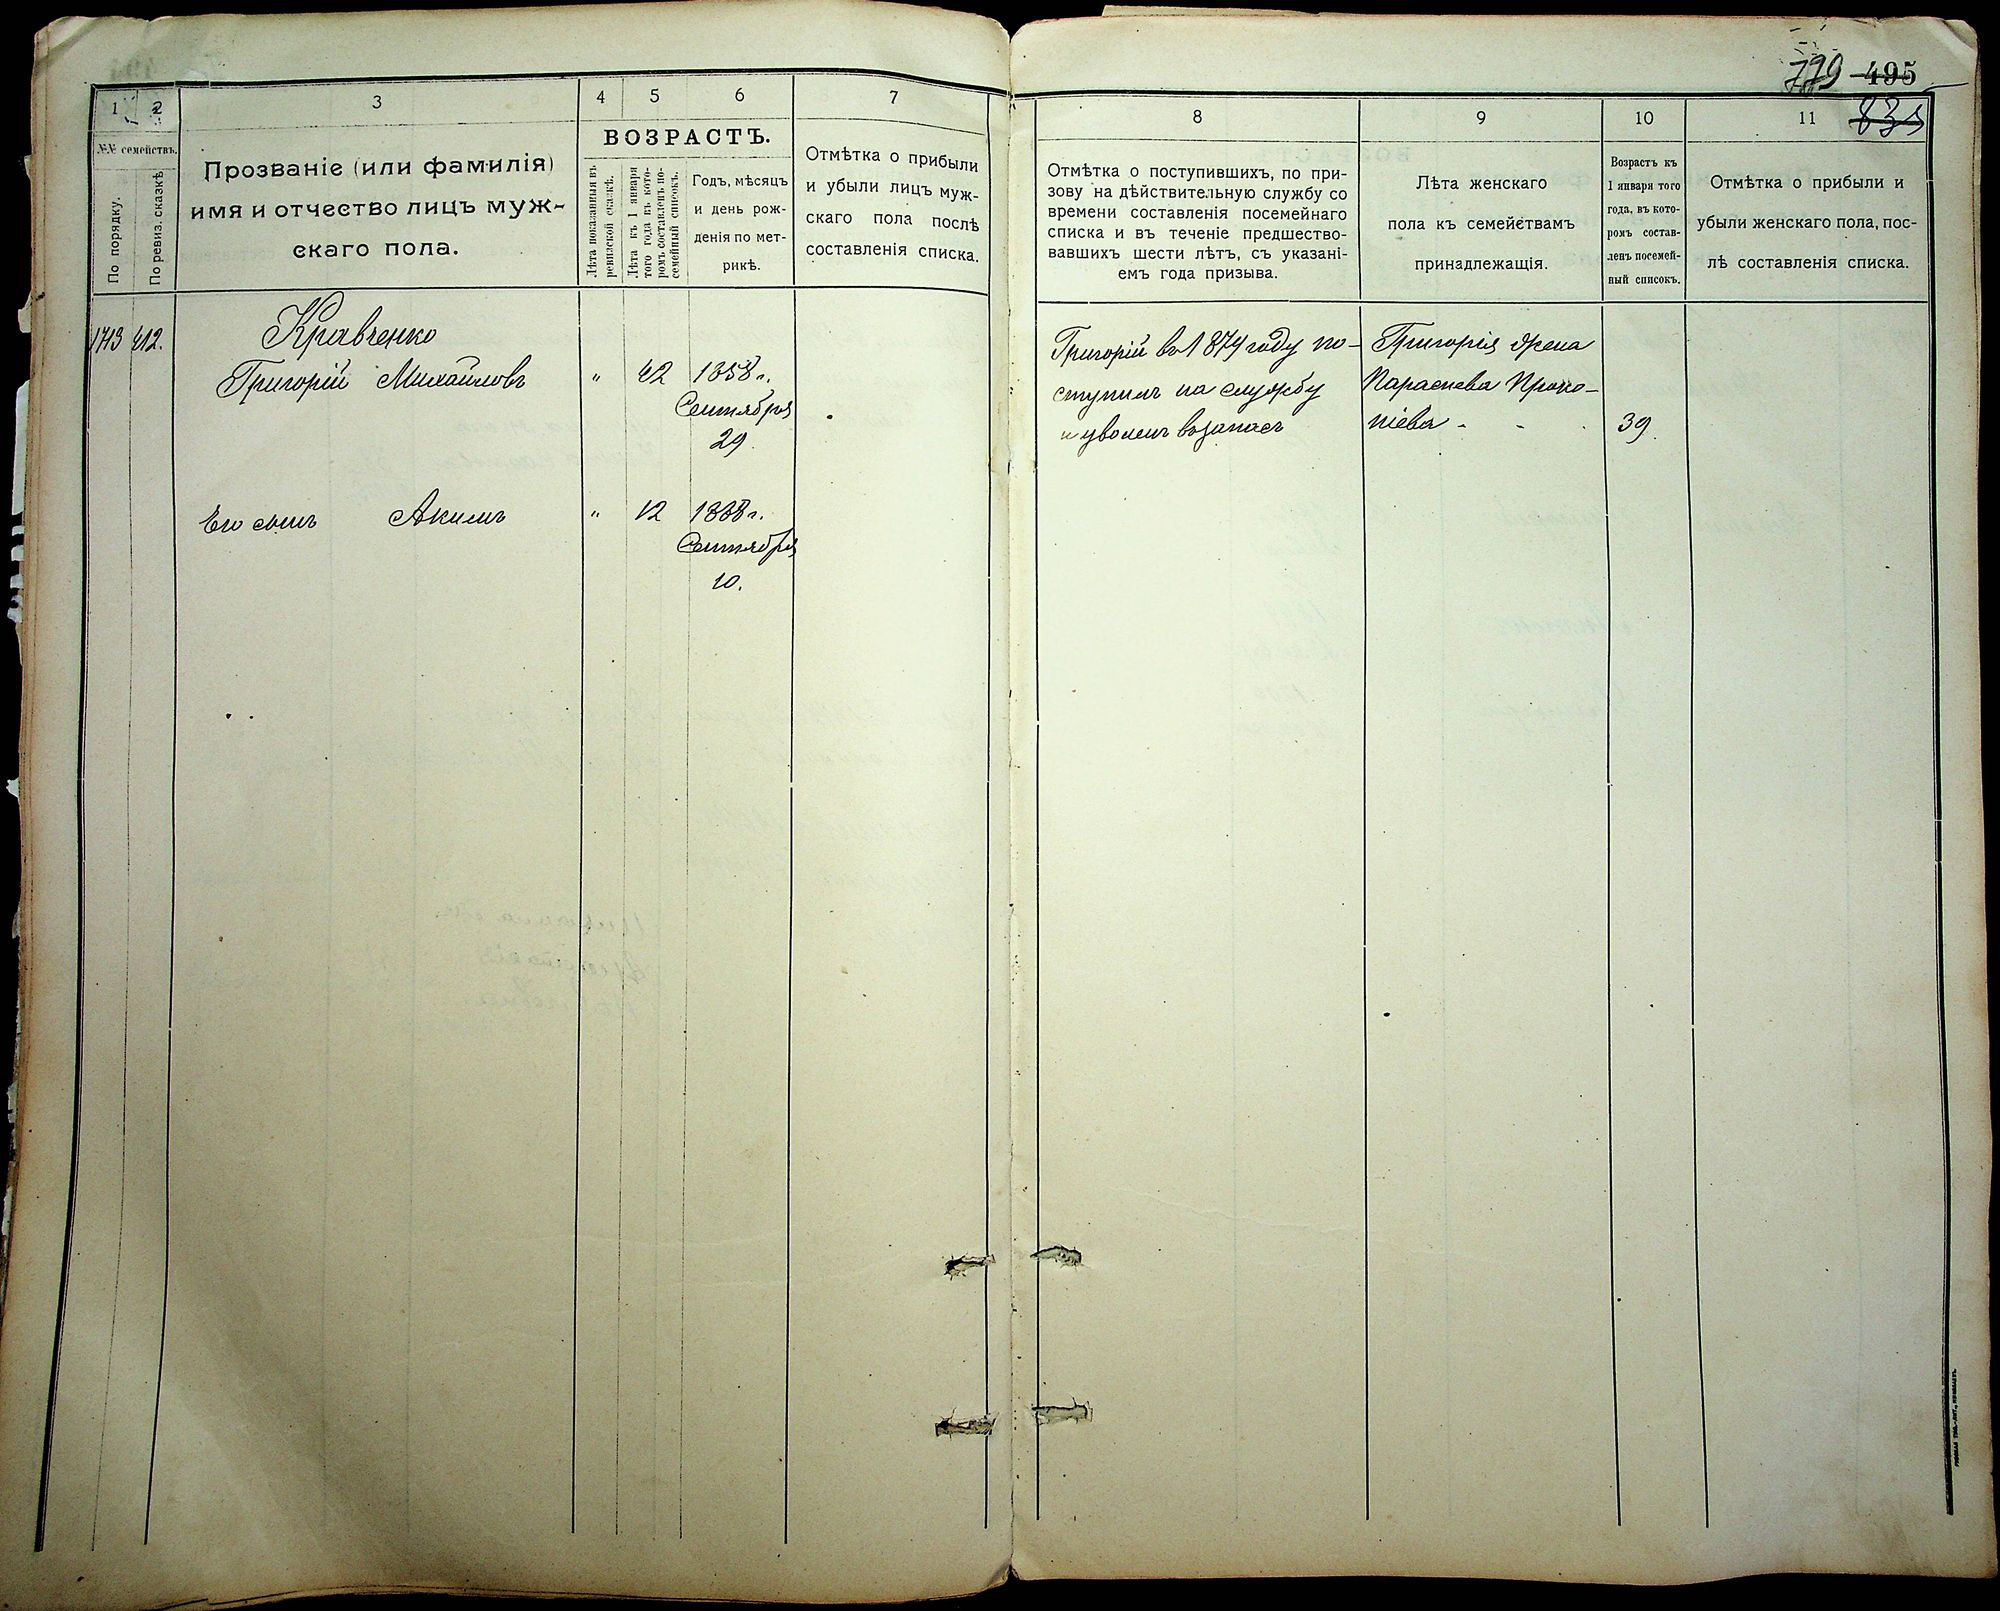 779 495
835
1
2
3
4
5
6
7
№№ семействъ.
По порядку.
По ревиз. сказкѣ
Прозваніе (или фамилія)
имя и отчество лицъ муж-
скаго пола.
ВОЗРАСТЪ.
Лѣта показанныя въ
ревизской сказкѣ.
Лѣта къ 1 января
того года въ кото-
ромъ составленъ по-
семейный списокъ.
Годъ, мѣсяцъ
и день рож-
денія по мет-
рикѣ.
Отмѣтка о прибыли
и убыли лицъ муж-
скаго пола послѣ
составленія списка.
1713 412.
Кравченко
Григорій Михайловъ
„ 42 1858 г.
Сентября
29
Его сынъ Акимъ
„ 12 1888 г.
Сентября
10.
8
9
10
11
Отмѣтка о поступившихъ, по при-
зову на дѣйствительную службу со
времени составленія посемейнаго
списка и въ теченіе предшество-
вавшихъ шести лѣтъ, съ указані-
емъ года призыва.
Лѣта женскаго
пола къ семействамъ
принадлежащія.
Возрастъ къ
1 января того
года, въ кото-
ромъ состав-
ленъ посемей-
ный списокъ.
Отмѣтка о прибыли и
убыли женскаго пола, пос-
лѣ составленія списка.
Григорій въ 1879 году по-
ступилъ на службу
и уволенъ въ запасъ
Григорія жена
Параскева Проко-
піева - - 39.